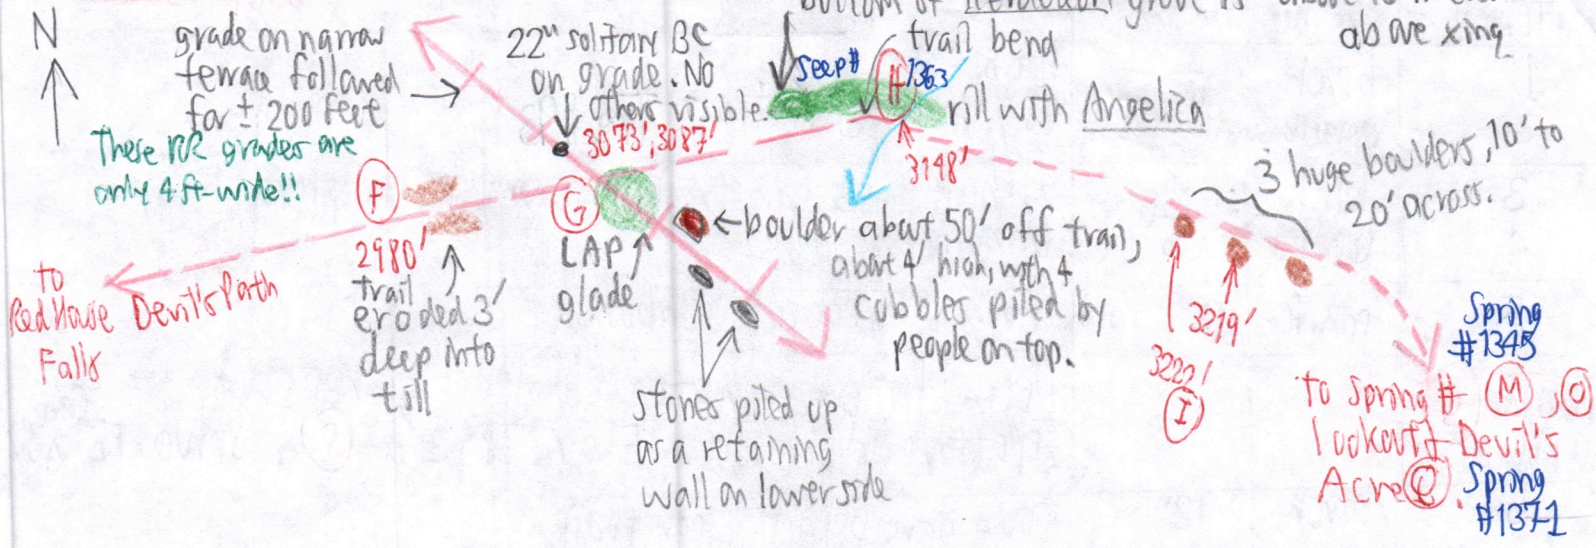 bottom of Heracleum grove is
above xing
N
grade on narrow
terrace followed
for ± 200 feet
These RR grades are
only 4 ft-wide!!
22" solitary BC
on grade. No
others visible.
3073', 3087'
Seep #
1363
H
trail bend
rill with Angelica
3148'
3 huge boulders, 10' to
20' across.
F
2980'
trail
eroded 3'
deep into
till
G
LAP
glade
boulder about 50' off trail,
about 4' high, with 4
cobbles piled by
people on top.
stones piled up
as a retaining
wall on lower side
to
Red House
Falls
Devil's Path
3219'
3220'
I
Spring
#1345
to Spring # M, O
lookout + Devil's
Acre C.
Spring
#1371